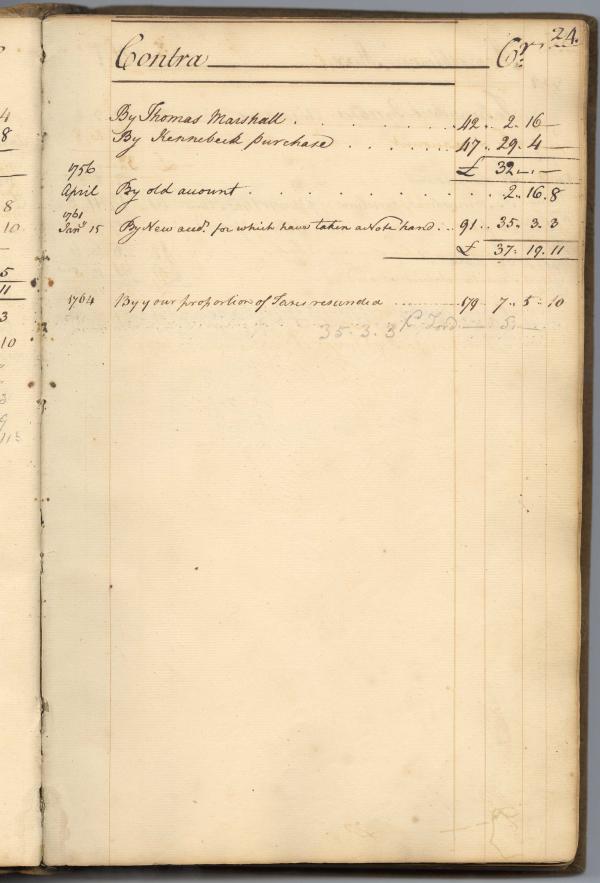 24.
Contra Cr.
By Thomas Marshall . . . . 42 .. 2. 16 —
By Kennebeck purchase . . . . 47 .. 29. 4 —
£ 32 — . —
1756
April By old account . . . . . . . . 2. 16. 8
1761
Janr 15 By New accot. for which have taken a Note hand ... 91 .. 35. 3. 3
£ 37. 19. 11
1764 By your proportion of Taxes resunded .......... 179 .. 7 .. 5 .. 10
35. 3. 3
4
8
8
10
5
11
3
10